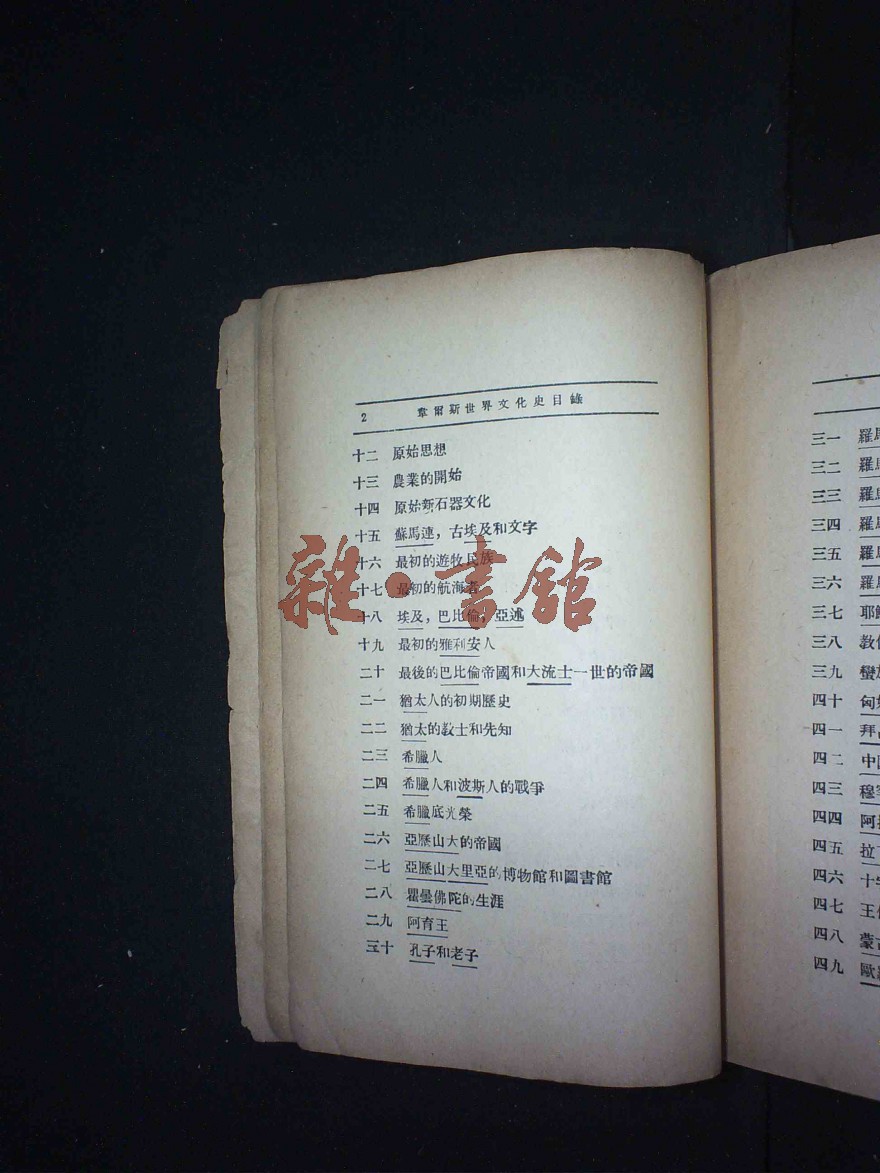 2 韋爾斯世界文化史目錄
十二 原始思想
十三 農業的開始
十四 原始新石器文化
十五 蘇馬連，古埃及和文字
十六 最初的遊牧民族
十七 最初的航海者
十八 埃及，巴比倫，亞述
十九 最初的雅利安人
二十 最後的巴比倫帝國和大流士一世的帝國
二一 猶太人的初期歷史
二二 猶太的教士和先知
二三 希臘人
二四 希臘人和波斯人的戰爭
二五 希臘底光榮
二六 亞歷山大的帝國
二七 亞歷山大里亞的博物館和圖書館
二八 瞿曇佛陀的生涯
二九 阿育王
三十 孔子和老子
雜·書館
三一 羅馬
三二 羅
三三 羅
三四 羅
三五 羅
三六 羅
三七 耶
三八 教
三九 蠻
四十 匈
四一 拜
四二 中
四三 穆
四四 阿
四五 拉
四六 十字
四七 王
四八 蒙
四九 歐